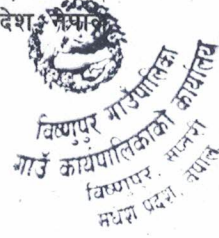 देश, नेपाल
विष्णुपुर गाउँपालिका
गाउँ कार्यपालिकाको कार्यालय
विष्णुपुर, सप्तरी
मधेश प्रदेश, नेपाल